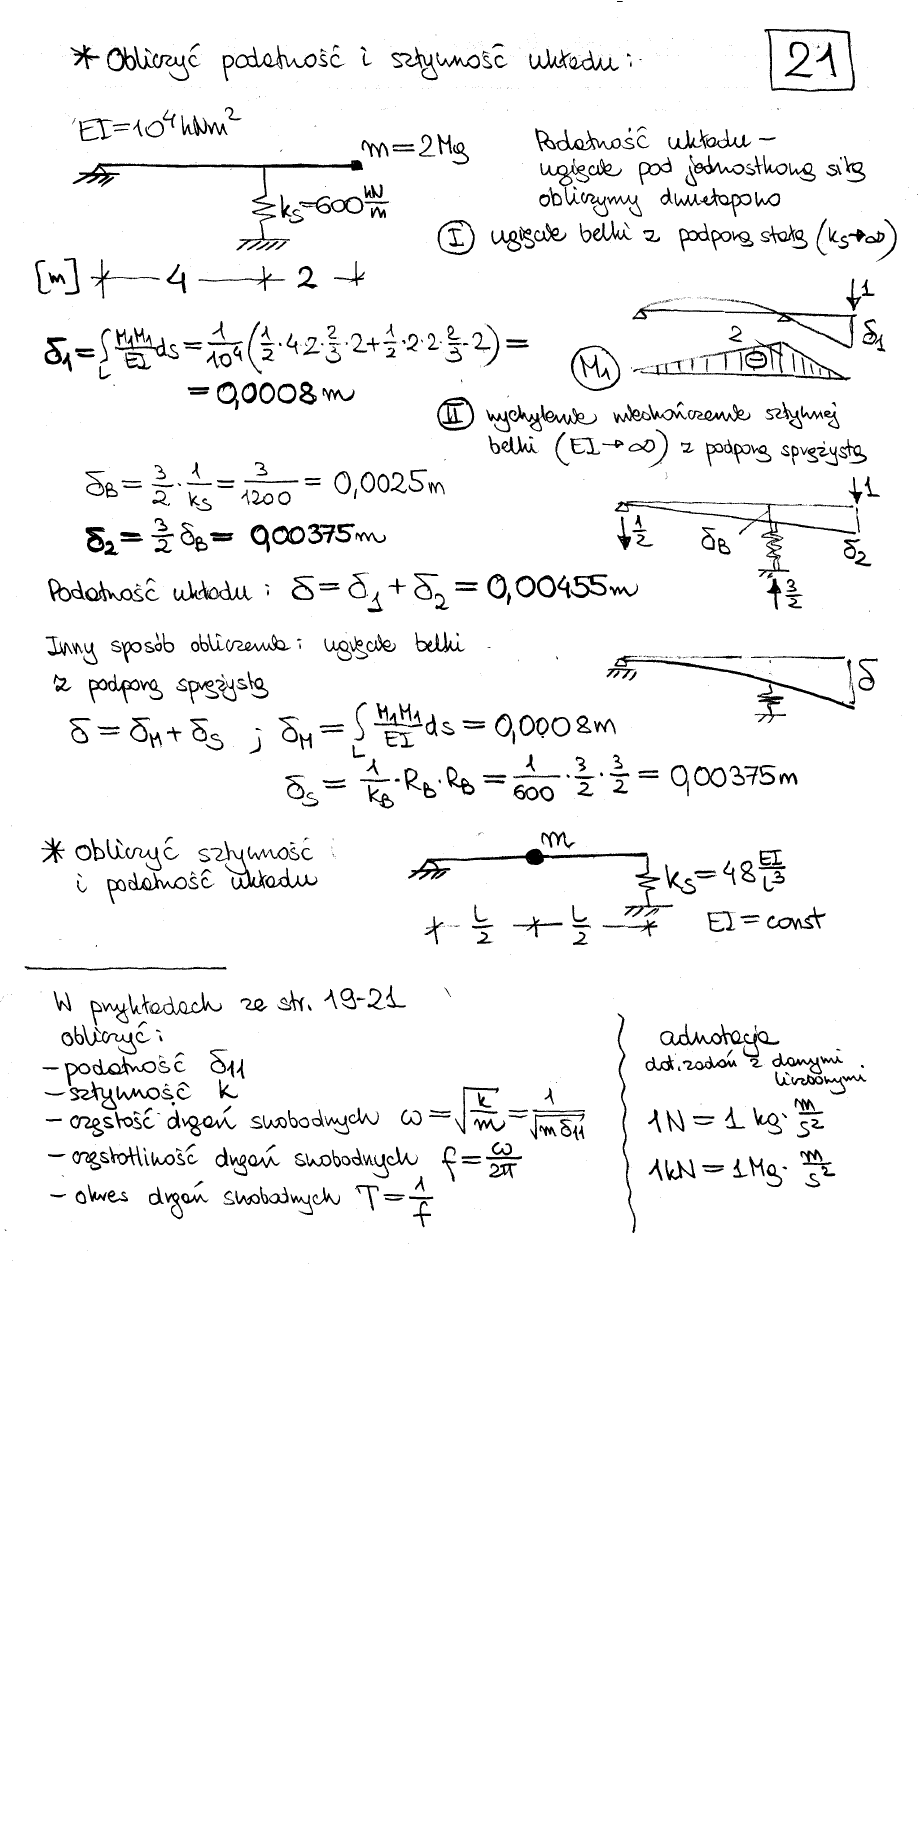 * Obliczyć podatność i sztywność układu:
21
EI=10⁴ kNm²
m=2Mg
kₛ=600 kN/m
[m] 4 2
Podatność układu –
ugięcie pod jednostkową siłą
obliczymy dwuetapowo
I ugięcie belki z podporą stałą (kₛ→∞)
1
δ₁
2
M₁
⊖
δ₁=∫_L M₁M₁/EI ds = 1/10⁴ (1/2·4·2·2/3·2+1/2·2·2·2/3·2) =
= 0,0008 m
II wychylenie nieskończenie sztywnej
belki (EI→∞) z podporą sprężystą
δ_B = 3/2 · 1/kₛ = 3/1200 = 0,0025 m
δ₂ = 3/2 δ_B = 0,00375 m
1
1/2
δ_B
δ₂
3/2
Podatność układu: δ = δ₁ + δ₂ = 0,00455 m
Inny sposób obliczenia: ugięcie belki
z podporą sprężystą
δ
δ = δ_M + δ_S ; δ_M = ∫_L M₁M₁/EI ds = 0,0008 m
δ_S = 1/k_B · R_B · R_B = 1/600 · 3/2 · 3/2 = 0,00375 m
* Obliczyć sztywność
i podatność układu
m
kₛ = 48 EI/L³
L/2 L/2
EI = const
W przykładach ze str. 19-21
obliczyć:
– podatność δ₁₁
– sztywność k
– częstość drgań swobodnych ω = √(k/m) = 1/√(m δ₁₁)
– częstotliwość drgań swobodnych f = ω/2π
– okres drgań swobodnych T = 1/f
adnotacja
dot. zadań z danymi
liczbowymi
1N = 1 kg · m/s²
1kN = 1Mg · m/s²